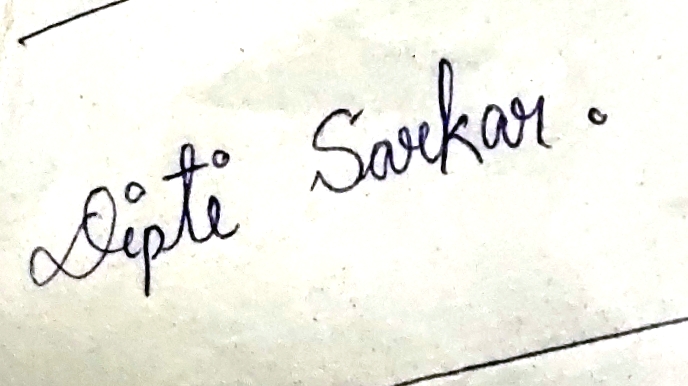 Dipti Sarkar.